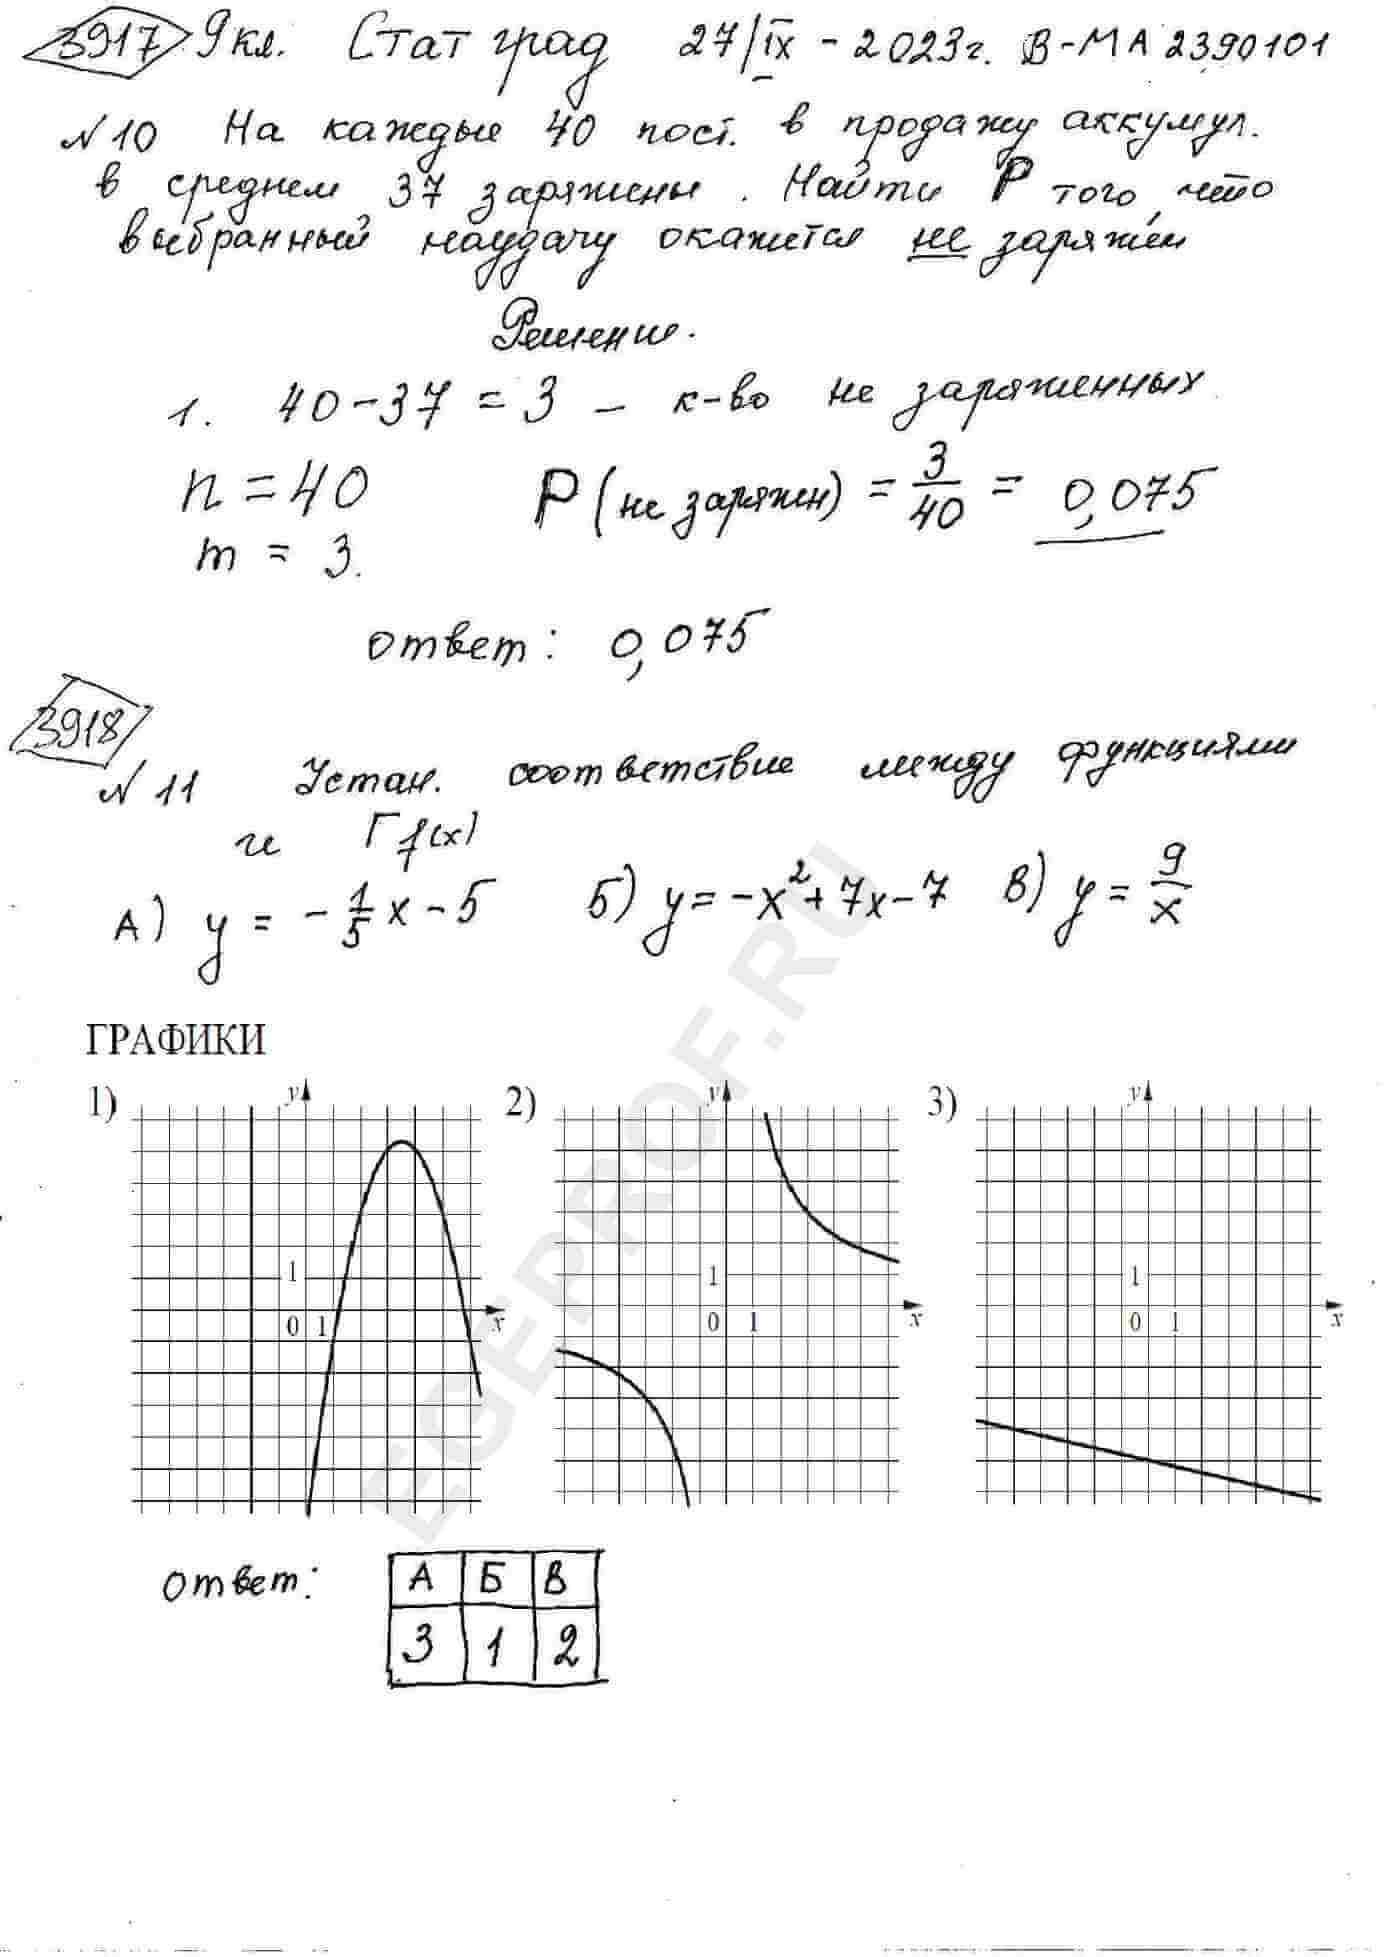 3917 9 кл. Статград 27/IX - 2023г. В-МА2390101
№10 На каждые 40 пост. в продажу аккумул.
в среднем 37 заряжены. Найти P того, что
выбранный наудачу окажется не заряжен
Решение.
1. 40-37 = 3 – к-во не заряженных
n = 40 P(не заряжен) = 3/40 = 0,075
m = 3.
ответ: 0,075
3918
№11 Устан. соответствие между функциями
и Г f(x)
А) y = -1/5 x - 5 Б) y = -x² + 7x - 7 В) y = 9/x
ГРАФИКИ
1) y 2) y 3) y
1 1 1
0 1 x 0 1 x 0 1 x
ответ: А Б В
3 1 2
EGEPROF.RU